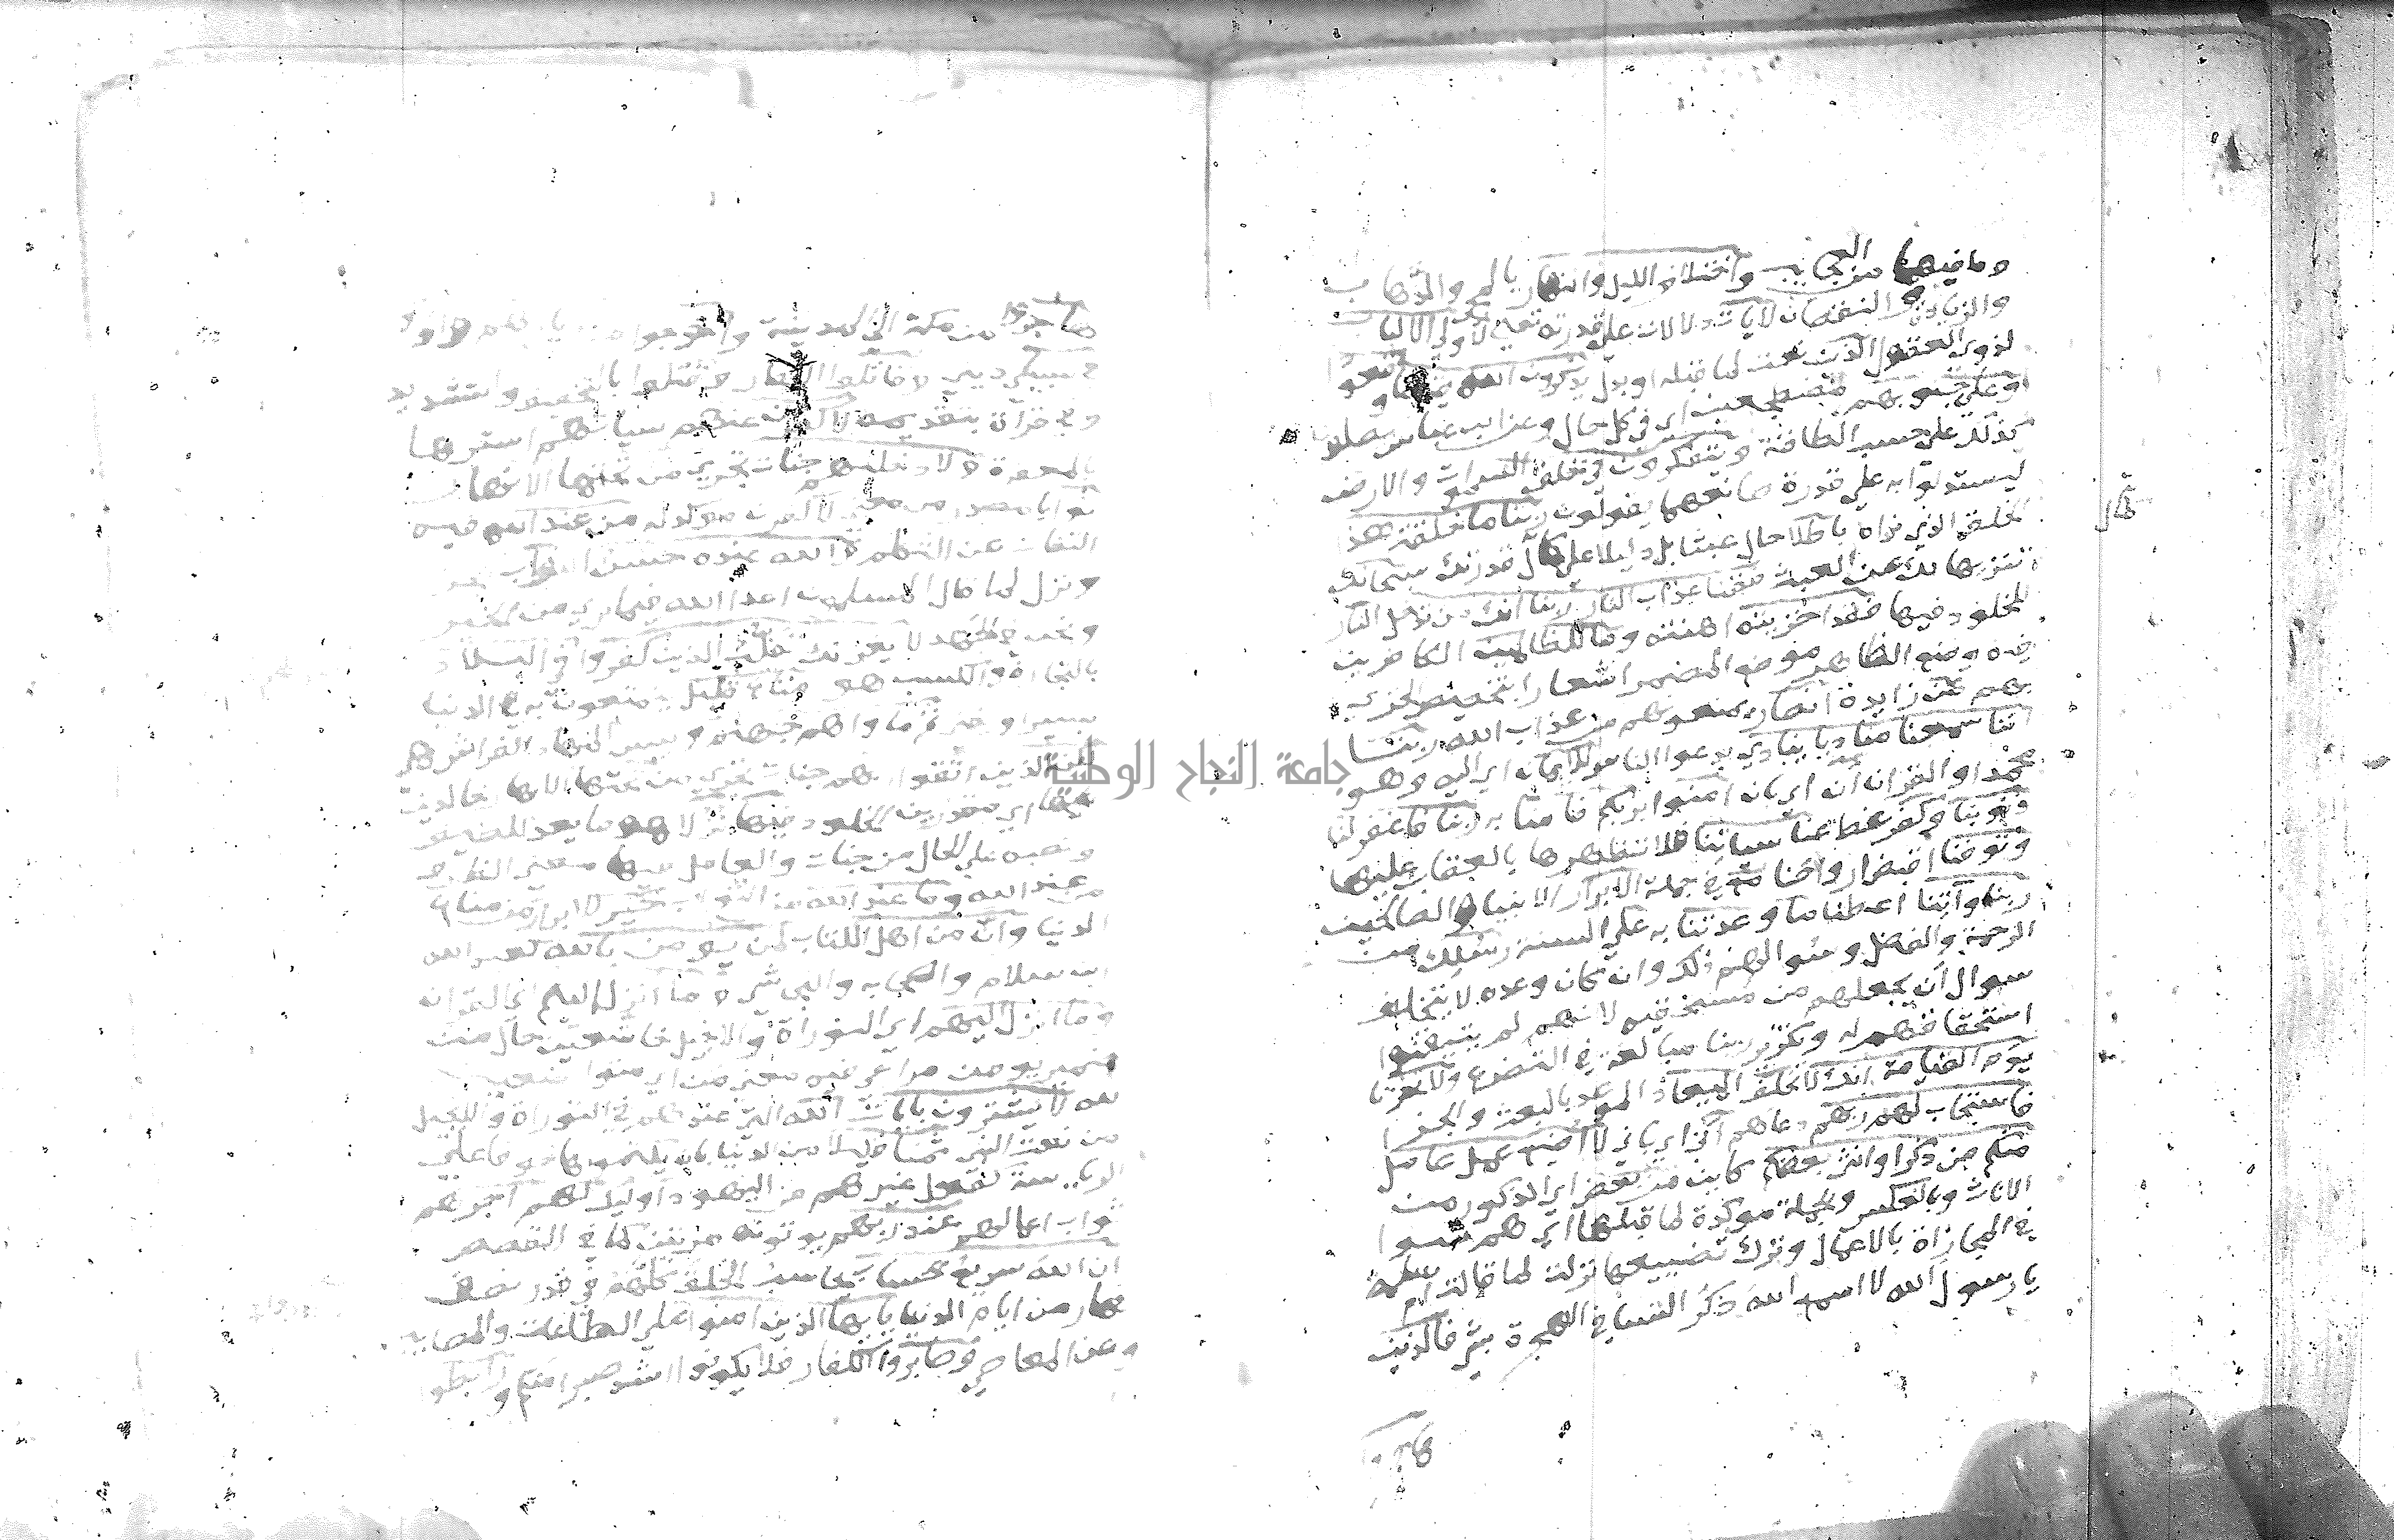 وما فيهما من العجايب واختلاف الليل والنهار بالمجي والذهاب
والزيادة والنقصان لايات دلالات على قدرته تعالى لاولي الالباب
لذوي العقول الذين نعت لما قبله او بدل يذكرون الله قياما وقعودا
وعلى جنوبهم مضطجعين اي في كل حال وعن ابن عباس يصلون
كذلك على حسب الطاقة ويتفكرون في خلق السموات والارض
ليستدلوا به على قدرة صانعهما يقولون ربنا ما خلقت هذا
الخلق الذي نراه باطلا حال عبثا بل دليلا على كمال قدرتك سبحانك
تنزيها لك عن العبث فقنا عذاب النار ربنا انك من تدخل النار
للخلود فيها فقد اخزيته اهنته وما للظالمين الكافرين
فيه وضع الظاهر موضع المضمر اشعارا بتخصيص الخزي
بهم من زايدة انصار يمنعونهم من عذاب الله ربنا
اننا سمعنا مناديا ينادي يدعوا الناس للايمان اي اليه وهو
محمد او القران ان اي بان امنوا بربكم فامنا به ربنا فاغفر لنا
ذنوبنا وكفر غط عنا سياتنا فلا تظهرها بالعقاب عليها
وتوفنا اقبض ارواحنا مع في جملة الابرار الانبيا والصالحين
ربنا وآتنا اعطنا ما وعدتنا به على السنة رسلك من
الرحمة والفضل وسوالهم ذلك وان كان وعده لا يتخلف
سوال ان يجعلهم من مستحقيه لانهم لم يتيقنوا
استحقاقهم له وتكرير ربنا مبالغة في التضرع ولا تخزنا
يوم القيامة انك لا تخلف الميعاد الموعد بالبعث والجزا
فاستجاب لهم ربهم دعاهم اني اي باني لا اضيع عمل عامل
منكم من ذكر او انثى بعضكم كاين من بعض اي الذكور من
الاناث وبالعكس والجملة موكدة لما قبلها اي هم سوا
في المجازاة بالاعمال وترك تضييعها نزلت لما قالت ام سلمة
يا رسول الله لا اسمع الله ذكر النسا في الهجرة بشي فالذين
هاجروا
هاجروا من مكة الى المدينة واخرجوا من ديارهم واوذوا
في سبيلي ديني وقاتلوا الكفار وقتلوا بالتخفيف والتشديد
وفي قراة بتقديمه لاكفرن عنهم سياتهم استرها
بالمغفرة ولادخلنهم جنات تجري من تحتها الانهار
ثوابا مصدر من معنى لاكفرن موكد له من عند الله فيه
التفات عن التكلم والله عنده حسن الثواب
ونزل لما قال المسلمون اعدا الله فيما نرى من الخير
ونحن في الجهد لا يغرنك تقلب الذين كفروا في البلاد
بالتجارة والكسب هو متاع قليل يتمتعون به في الدنيا
يسيرا ويفنى ثم ماواهم جهنم وبيس المهاد الفراش هي
لكن الذين اتقوا ربهم جنات تجري من تحتها الانهار خالدين
فيها اي مقدرين الخلود فيها نزلا وهو ما يعد للضيف
ونصبه على الحال من جنات والعامل فيها معنى الظرف
من عند الله وما عند الله من الثواب خير للابرار من متاع
الدنيا وان من اهل الكتاب لمن يومن بالله كعبد الله
ابن سلام واصحابه والنجاشي وما انزل اليكم اي القران
وما انزل اليهم اي التوراة والانجيل خاشعين حال من
ضمير يومن مراعى فيه معنى من اي متواضعين
لله لا يشترون بايات الله التي عندهم في التوراة والانجيل
من نعت النبي ثمنا قليلا من الدنيا بان يكتموها خوفا على
الرياسة كفعل غيرهم من اليهود اوليك لهم اجرهم
ثواب اعمالهم عند ربهم يوتونه مرتين كما في القصص
ان الله سريع الحساب يحاسب الخلق كلهم في قدر نصف
نهار من ايام الدنيا يايها الذين امنوا اصبروا على الطاعات والمصايب
وعن المعاصي وصابروا الكفار فلا يكونوا اشد صبرا منكم ورابطوا
جامعة النجاح الوطنية